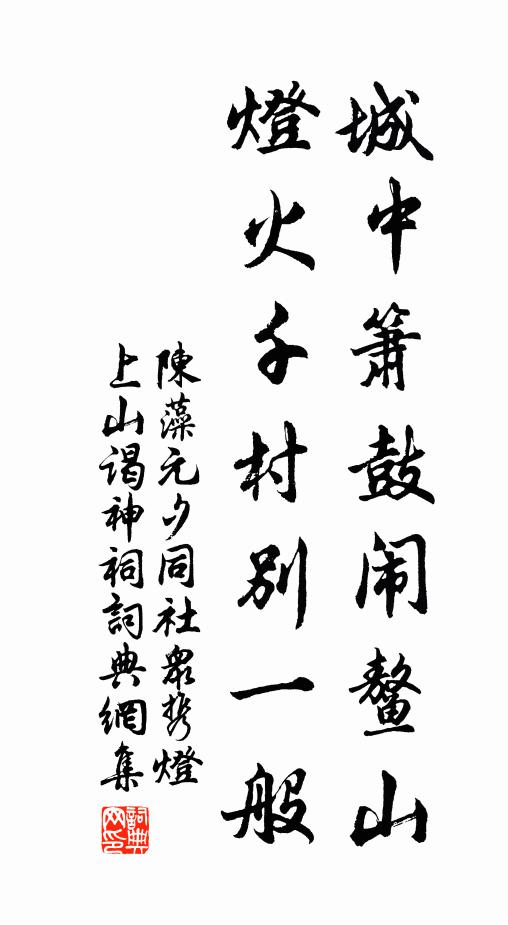 城中簫鼓闹鳌山
燈火千村别一般
陳藻元夕同社眾携燈
上山谒神祠詞典網集
詞典网印